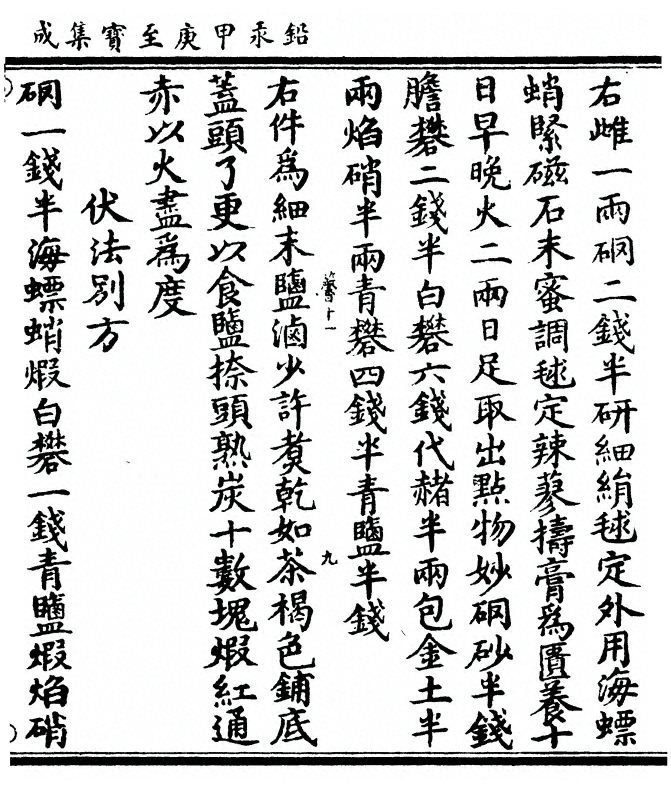 鉛汞甲庚至寶集成
右雌一兩硇二錢半研細絹毬定外用海螵
蛸緊磁石末蜜調毬定辣蓼擣膏爲匱養十
日早晚火二兩日足取出點物妙硇砂半錢
膽礬二錢半白礬六錢代赭半兩包金土半
兩焰硝半兩青礬四錢半青鹽半錢
右件爲細末鹽滷少許煑乾如茶褐色鋪底
蓋頭了更以食鹽捺頭熟炭十數塊煆紅通
赤以火盡爲度
伏法別方
硇一錢半海螵蛸煆白礬一錢青鹽煆焰硝
十一
九